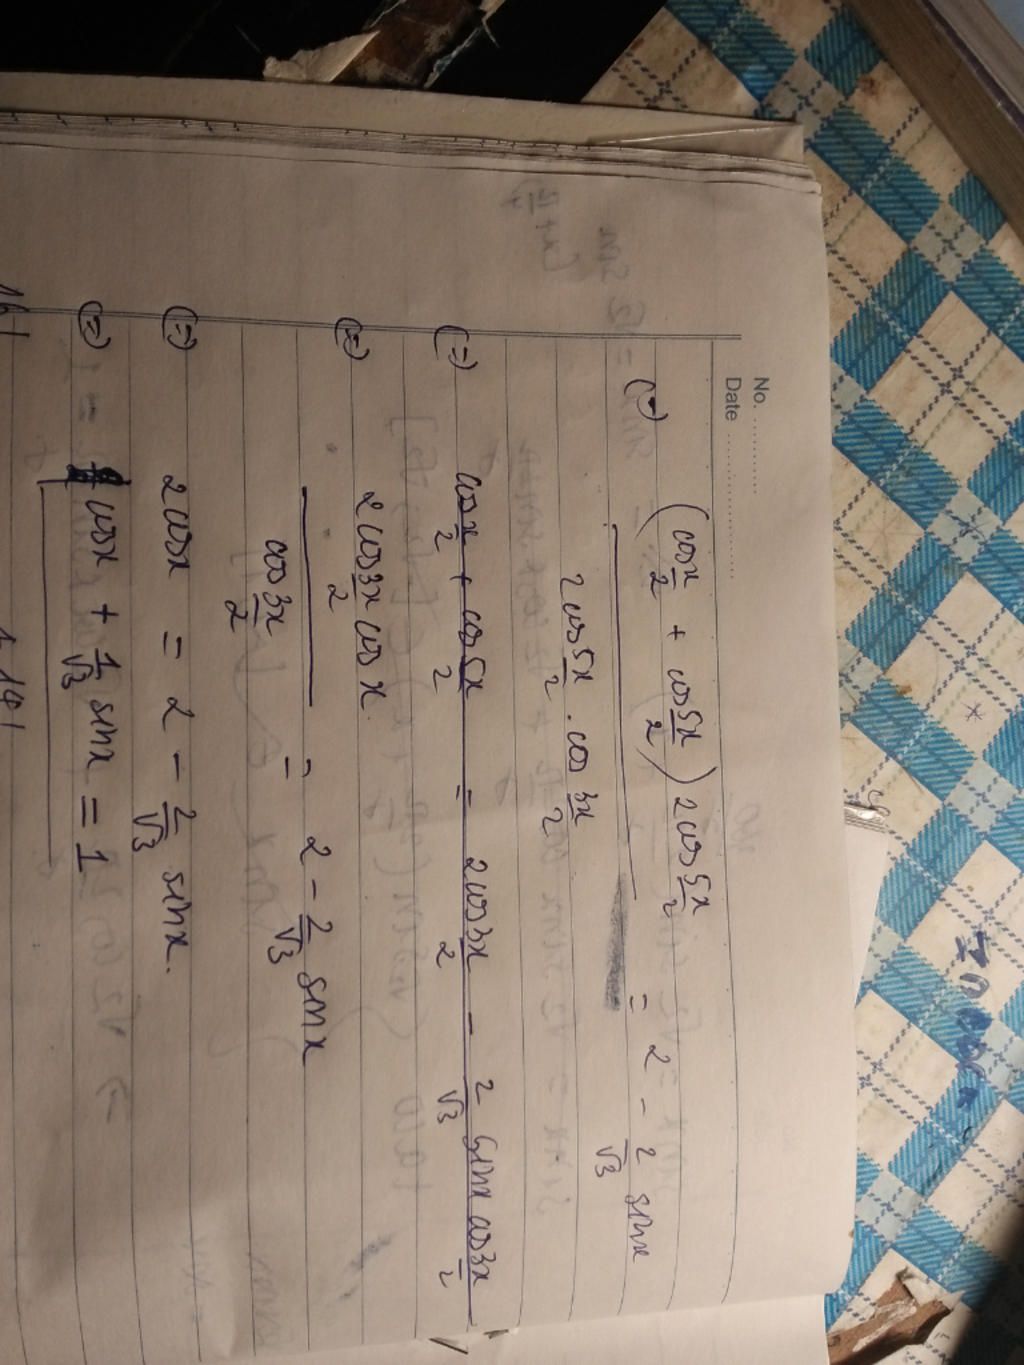 No.
Date
(=) (cos x/2 + cos 5x/2) 2 cos 5x/2
───────── = 2 - 2/√3 sin x
2 cos 5x/2 . cos 3x/2
(=) cos x/2 + cos 5x/2 = 2 cos 3x/2 - 2/√3 sin x cos 3x/2
(=) 2 cos 3x/2 cos x
───────── = 2 - 2/√3 sin x
cos 3x/2
(=) 2 cos x = 2 - 2/√3 sin x.
(=) cos x + 1/√3 sin x = 1